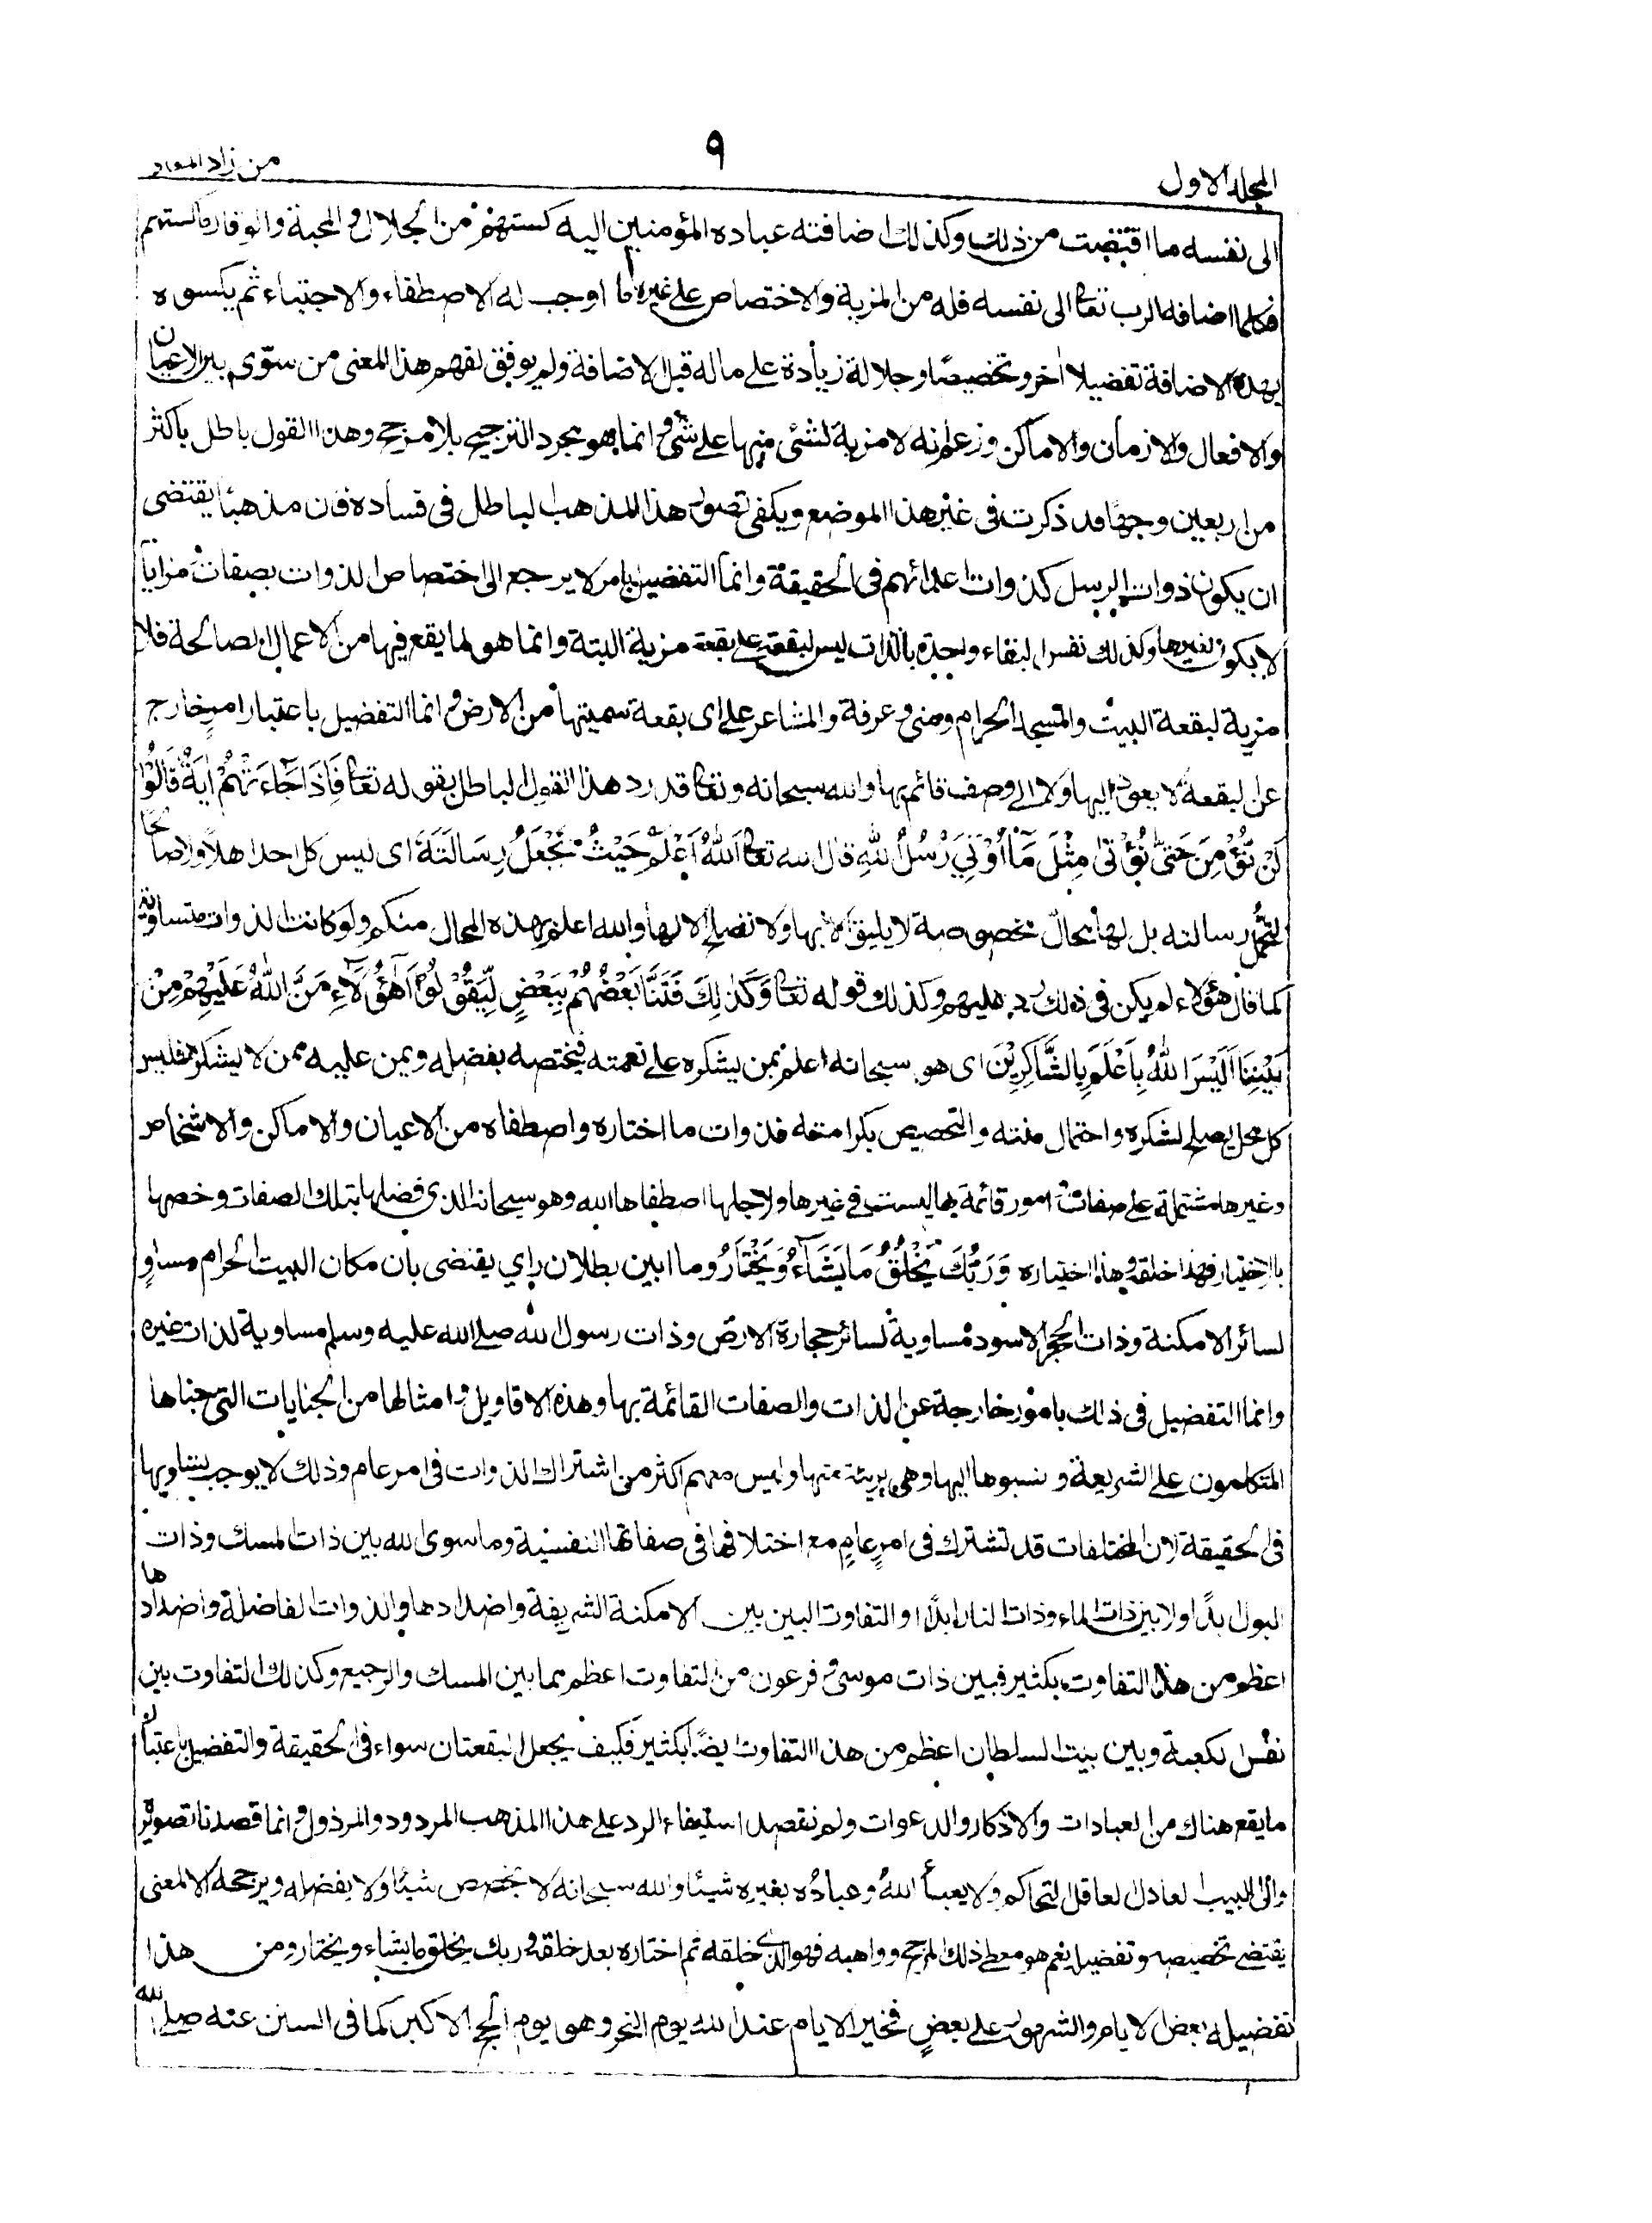 المجلد الاول
٩
من زاد المعاد
الى نفسه ما اقتضت من ذلك وكذلك اضافته عباده المؤمنين اليه كستهم من الجلال و المحبة والوقار ما كستهم
فكلما اضافه الرب تعالى الى نفسه فله من المزية والاختصاص على غيره ما اوجب له الاصطفاء والاجتباء ثم يكسوه
بهذه الاضافة تفضيلا اخر وتخصيصًا وجلالة زيادة على ما له قبل الاضافة ولم يوفق لفهم هذا المعنى من سوّى بين الاعيان
والافعال والازمان والاماكن وزعم انه لا مزية لشئ منها على شئ و انما هو مجرد الترجيح بلا مرجح وهذا القول باطل باكثر
من اربعين وجهًا قد ذكرت فى غير هذا الموضع ويكفى تصور هذا المذهب الباطل فى فساده فان مذهبًا يقتضى
ان يكون ذوات الرسل كذوات اعدائهم فى الحقيقة وانما التفضيل بامر لا يرجع الى اختصاص الذوات بصفات ومزايا
لا يكون لغيرها وكذلك نفس البقاع واحدة بالذات ليس لبقعة على بقعة مزية البتة وانما هو لما يقع فيها من الاعمال الصالحة فلا
مزية لبقعة البيت والمسجد الحرام ومنى و عرفة والمشاعر على اى بقعة سميتها من الارض و انما التفضيل باعتبار امرٍ خارج
عن البقعة لا يعود اليها ولا الى وصف قائم بها والله سبحانه وتعالى قد رد هذا القول الباطل بقوله تعالى فَاِذَا جَاءَتْهُمْ اٰيَةٌ قَالُوْا
لَنْ نُّؤْمِنَ حَتّٰى نُؤْتٰى مِثْلَ مَآ اُوْتِيَ رُسُلُ اللهِ قال الله تعالى اَللهُ اَعْلَمُ حَيْثُ يَجْعَلُ رِسَالَتَهُ اى ليس كل احد اهلاً ولا صالحًا
لتحمل رسالته بل لها محالّ مخصوصة لا يليق الا بها ولا تصلح الا لها والله اعلم بهذه المحال منكم ولو كانت الذوات متساوية
كما قال هؤلاء لم يكن فى ذلك رد عليهم وكذلك قوله تعالى وَكَذٰلِكَ فَتَنَّا بَعْضَهُمْ بِبَعْضٍ لِّيَقُوْلُوْا اَهٰٓؤُلَاءِ مَنَّ اللهُ عَلَيْهِمْ مِنْ
بَيْنِنَا اَلَيْسَ اللهُ بِاَعْلَمَ بِالشَّاكِرِيْنَ اى هو سبحانه اعلم بمن يشكره على نعمته فيختصه بفضله ويمن عليه ممن لا يشكره فليس
كل محل يصلح لشكره واحتمال منته والتخصيص بكرامته فذوات ما اختاره واصطفاه من الاعيان والاماكن والاشخاص
وغيرها مشتملة على صفات و امور قائمة بها ليست فى غيرها ولاجلها اصطفاها الله وهو سبحانه الذى فضلها بتلك الصفات وخصها
بالاختيار فهذا خلقه و هذا اختياره وَرَبُّكَ يَخْلُقُ مَا يَشَآءُ وَيَخْتَارُ وما ابين بطلان راي يقتضى بان مكان البيت الحرام مساوٍ
لسائر الامكنة وذات الحجر الاسود مساوية لسائر حجارة الارض وذات رسول الله صلى الله عليه وسلم مساوية لذات غيره
وانما التفضيل فى ذلك بامور خارجة عن الذات والصفات القائمة بها وهذه الاقاويل و امثالها من الجنايات التى جناها
المتكلمون على الشريعة و نسبوها اليها وهى بريئة منها وليس معهم اكثر من اشتراك الذوات فى امر عام وذلك لا يوجب تساويها
فى الحقيقة لان المختلفات قد تشترك فى امرٍ عامٍ مع اختلافها فى صفاتها النفسية وما سوى الله بين ذات المسك وذات
البول ابدًا ولا بين ذات الماء وذات النار ابدًا و التفاوت البين بين الامكنة الشريفة واضدادها والذوات الفاضلة واضدادها
اعظم من هذا التفاوت بكثير فبين ذات موسى و فرعون من التفاوت اعظم مما بين المسك والرجيع وكذلك التفاوت بين
نفس الكعبة وبين بيت السلطان اعظم من هذا التفاوت ايضًا بكثير فكيف يجعل البقعتان سواء فى الحقيقة والتفضيل باعتبار
ما يقع هناك من العبادات والاذكار والدعوات ولم نقصد استيفاء الرد على هذا المذهب المردود والمرذول و انما قصدنا تصويره
والى اللبيب العادل العاقل التحاكم ولا يعبأ اللهُ وعبادُه بغيره شيئا والله سبحانه لا يخصص شيئا ولا يفضله ويرجحه الا لمعنى
يقتضى تخصيصه وتفضيله نعم هو معطى ذلك المرجح وواهبه فهو الذى خلقه ثم اختاره بعد خلقه و ربك يخلق ما يشاء ويختار ومن هذا
تفضيله بعض الايام والشهور على بعضٍ فخير الايام عند الله يوم النحر وهو يوم الحج الاكبر كما فى السنن عنه صلى الله